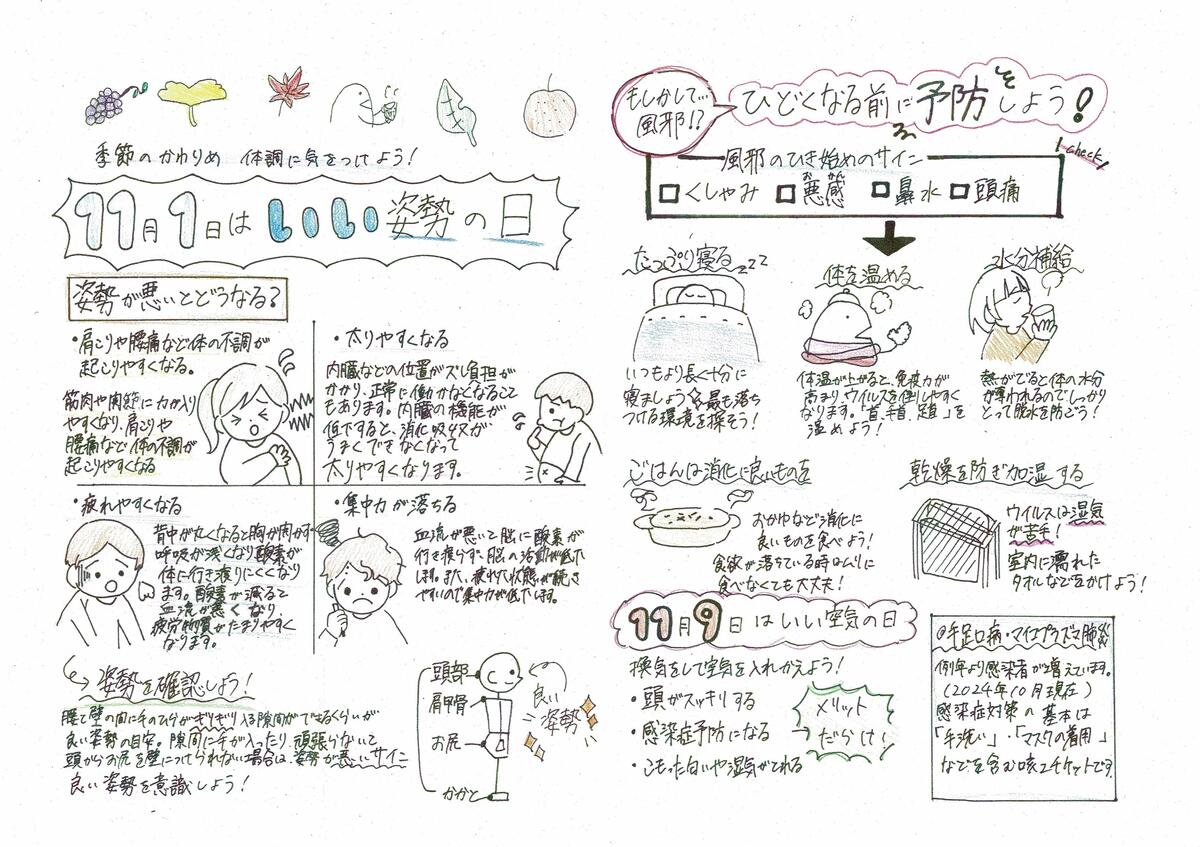 季節のかわりめ 体調に気をつけよう!
11月1日は いい姿勢の日
姿勢が悪いとどうなる?
・肩こりや腰痛など体の不調が
起こりやすくなる。
筋肉や関節に力が入り
やすくなり、肩こりや
腰痛など体の不調が
起こりやすくなる
・太りやすくなる
内臓などの位置がズレ負担が
かかり、正常に働かなくなること
もあります。内臓の機能が
低下すると、消化吸収が
うまくできなくなって
太りやすくなります。
・疲れやすくなる
背中が丸くなると胸が開かず
呼吸が浅くなり酸素が
体に行き渡りにくくなり
ます。酸素が減ると
血流が悪くなり、
疲労物質がたまりやすく
なります。
・集中力が落ちる
血流が悪いと脳に酸素が
行き渡らず、脳の活動が低下
します。また、疲れた状態が続き
やすいので集中力が低下します。
姿勢を確認しよう!
腰と壁の間に手のひらがぎりぎり入る隙間ができるくらいが
良い姿勢の目安。隙間に手が入ったり、頑張らないと
頭からお尻を壁につけられない場合は、姿勢が悪いサイン
良い姿勢を意識しよう!
頭部
肩甲骨
お尻
かかと
良い
姿勢
もしかして…
風邪!?
ひどくなる前に予防をしよう!
check!
風邪のひき始めのサイン
□くしゃみ □悪感 □鼻水 □頭痛
おかん
たっぷり寝る
zzz
いつもより長く十分に
寝ましょう
つける環境を探そう!
体を温める
体温が上がると、免疫力が
高まり、ウイルスを倒しやすく
なります。「首、手首、足首」を
温めよう!
水分補給
熱がでると体の水分
が奪われるのでしっかり
とって脱水を防ごう!
ごはんは消化に良いものを
おかゆなど消化に
良いものを食べよう!
食欲が落ちている時はムリに
食べなくても大丈夫!
乾燥を防ぎ加湿する
ウイルスは湿気
が苦手!
室内に濡れた
タオルなどをかけよう!
11月9日はいい空気の日
換気をして空気を入れかえよう!
・頭がスッキリする
・感染症予防になる
・こもった匂いや湿気がとれる
メリット
だらけ!
@手足口病・マイコプラズマ肺炎
例年より感染者が増えています。
(2024年10月現在)
感染症対策の基本は
「手洗い」、「マスクの着用」
などを含む咳エチケットです。